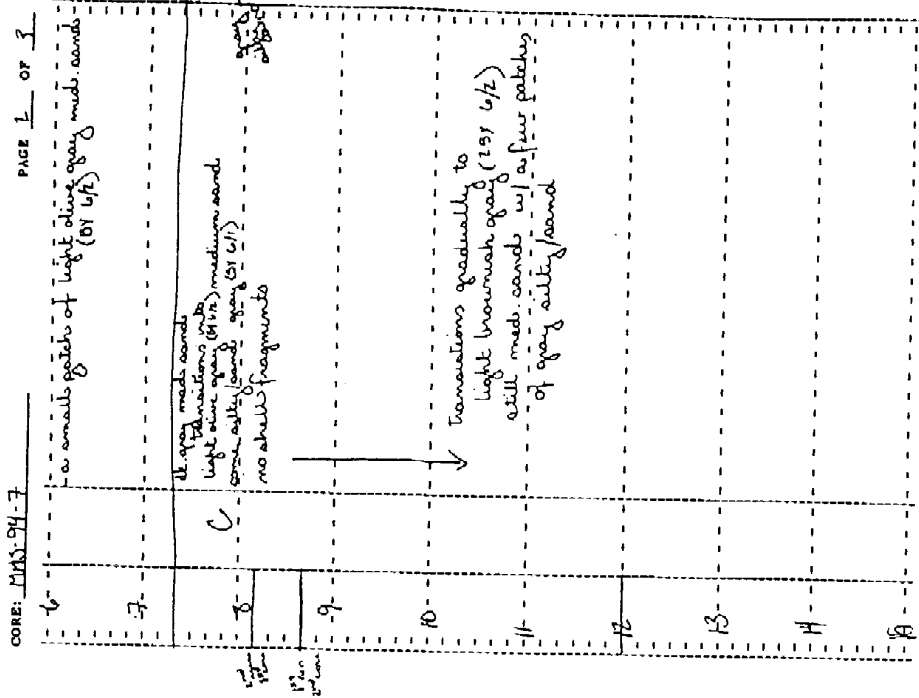 CORE: MMS-94-7
PAGE 2 OF 3
6
- a small patch of light olive gray med. sand
(5Y 6/2)
7
dk gray med sand
transitions into
light olive gray (5Y 6/2) medium sand
C
8
some silty/sand gray (5Y 6/1)
no shell fragments
9
10
transitions gradually to
light brownish gray (2.5Y 6/2)
still med. sand w/ a few patches
of gray silty/sand
11
12
13
14
15